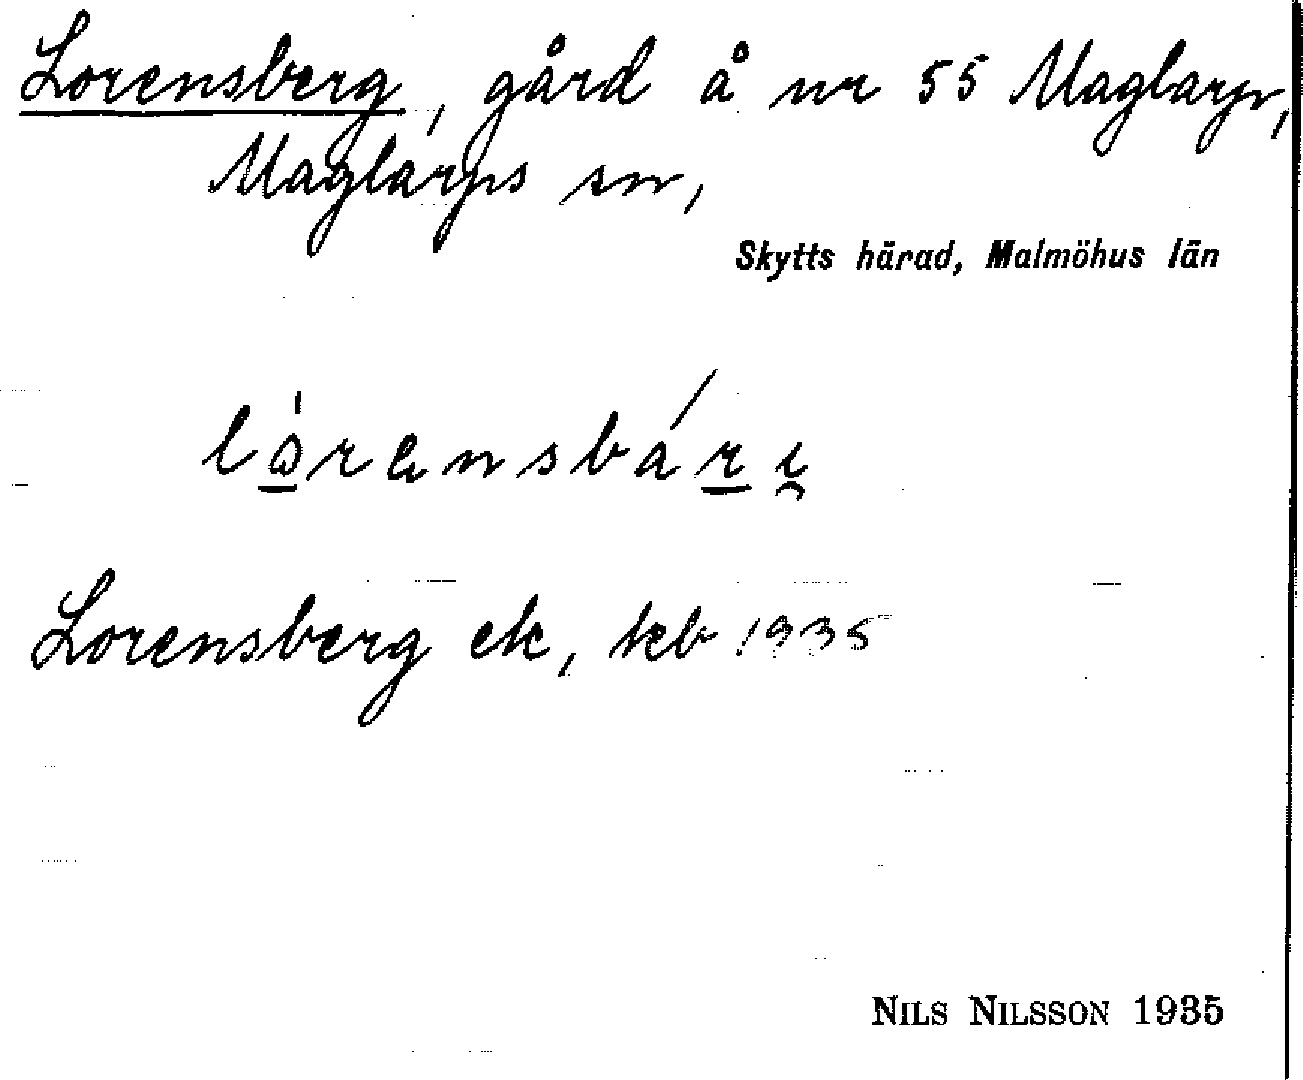 Lorensberg, gård å nr 55 Maglarp,
Maglarps sn,
Skytts härad, Malmöhus län
lòrensbárı̯
Lorensberg ek, kb 1935
NILS NILSSON 1935